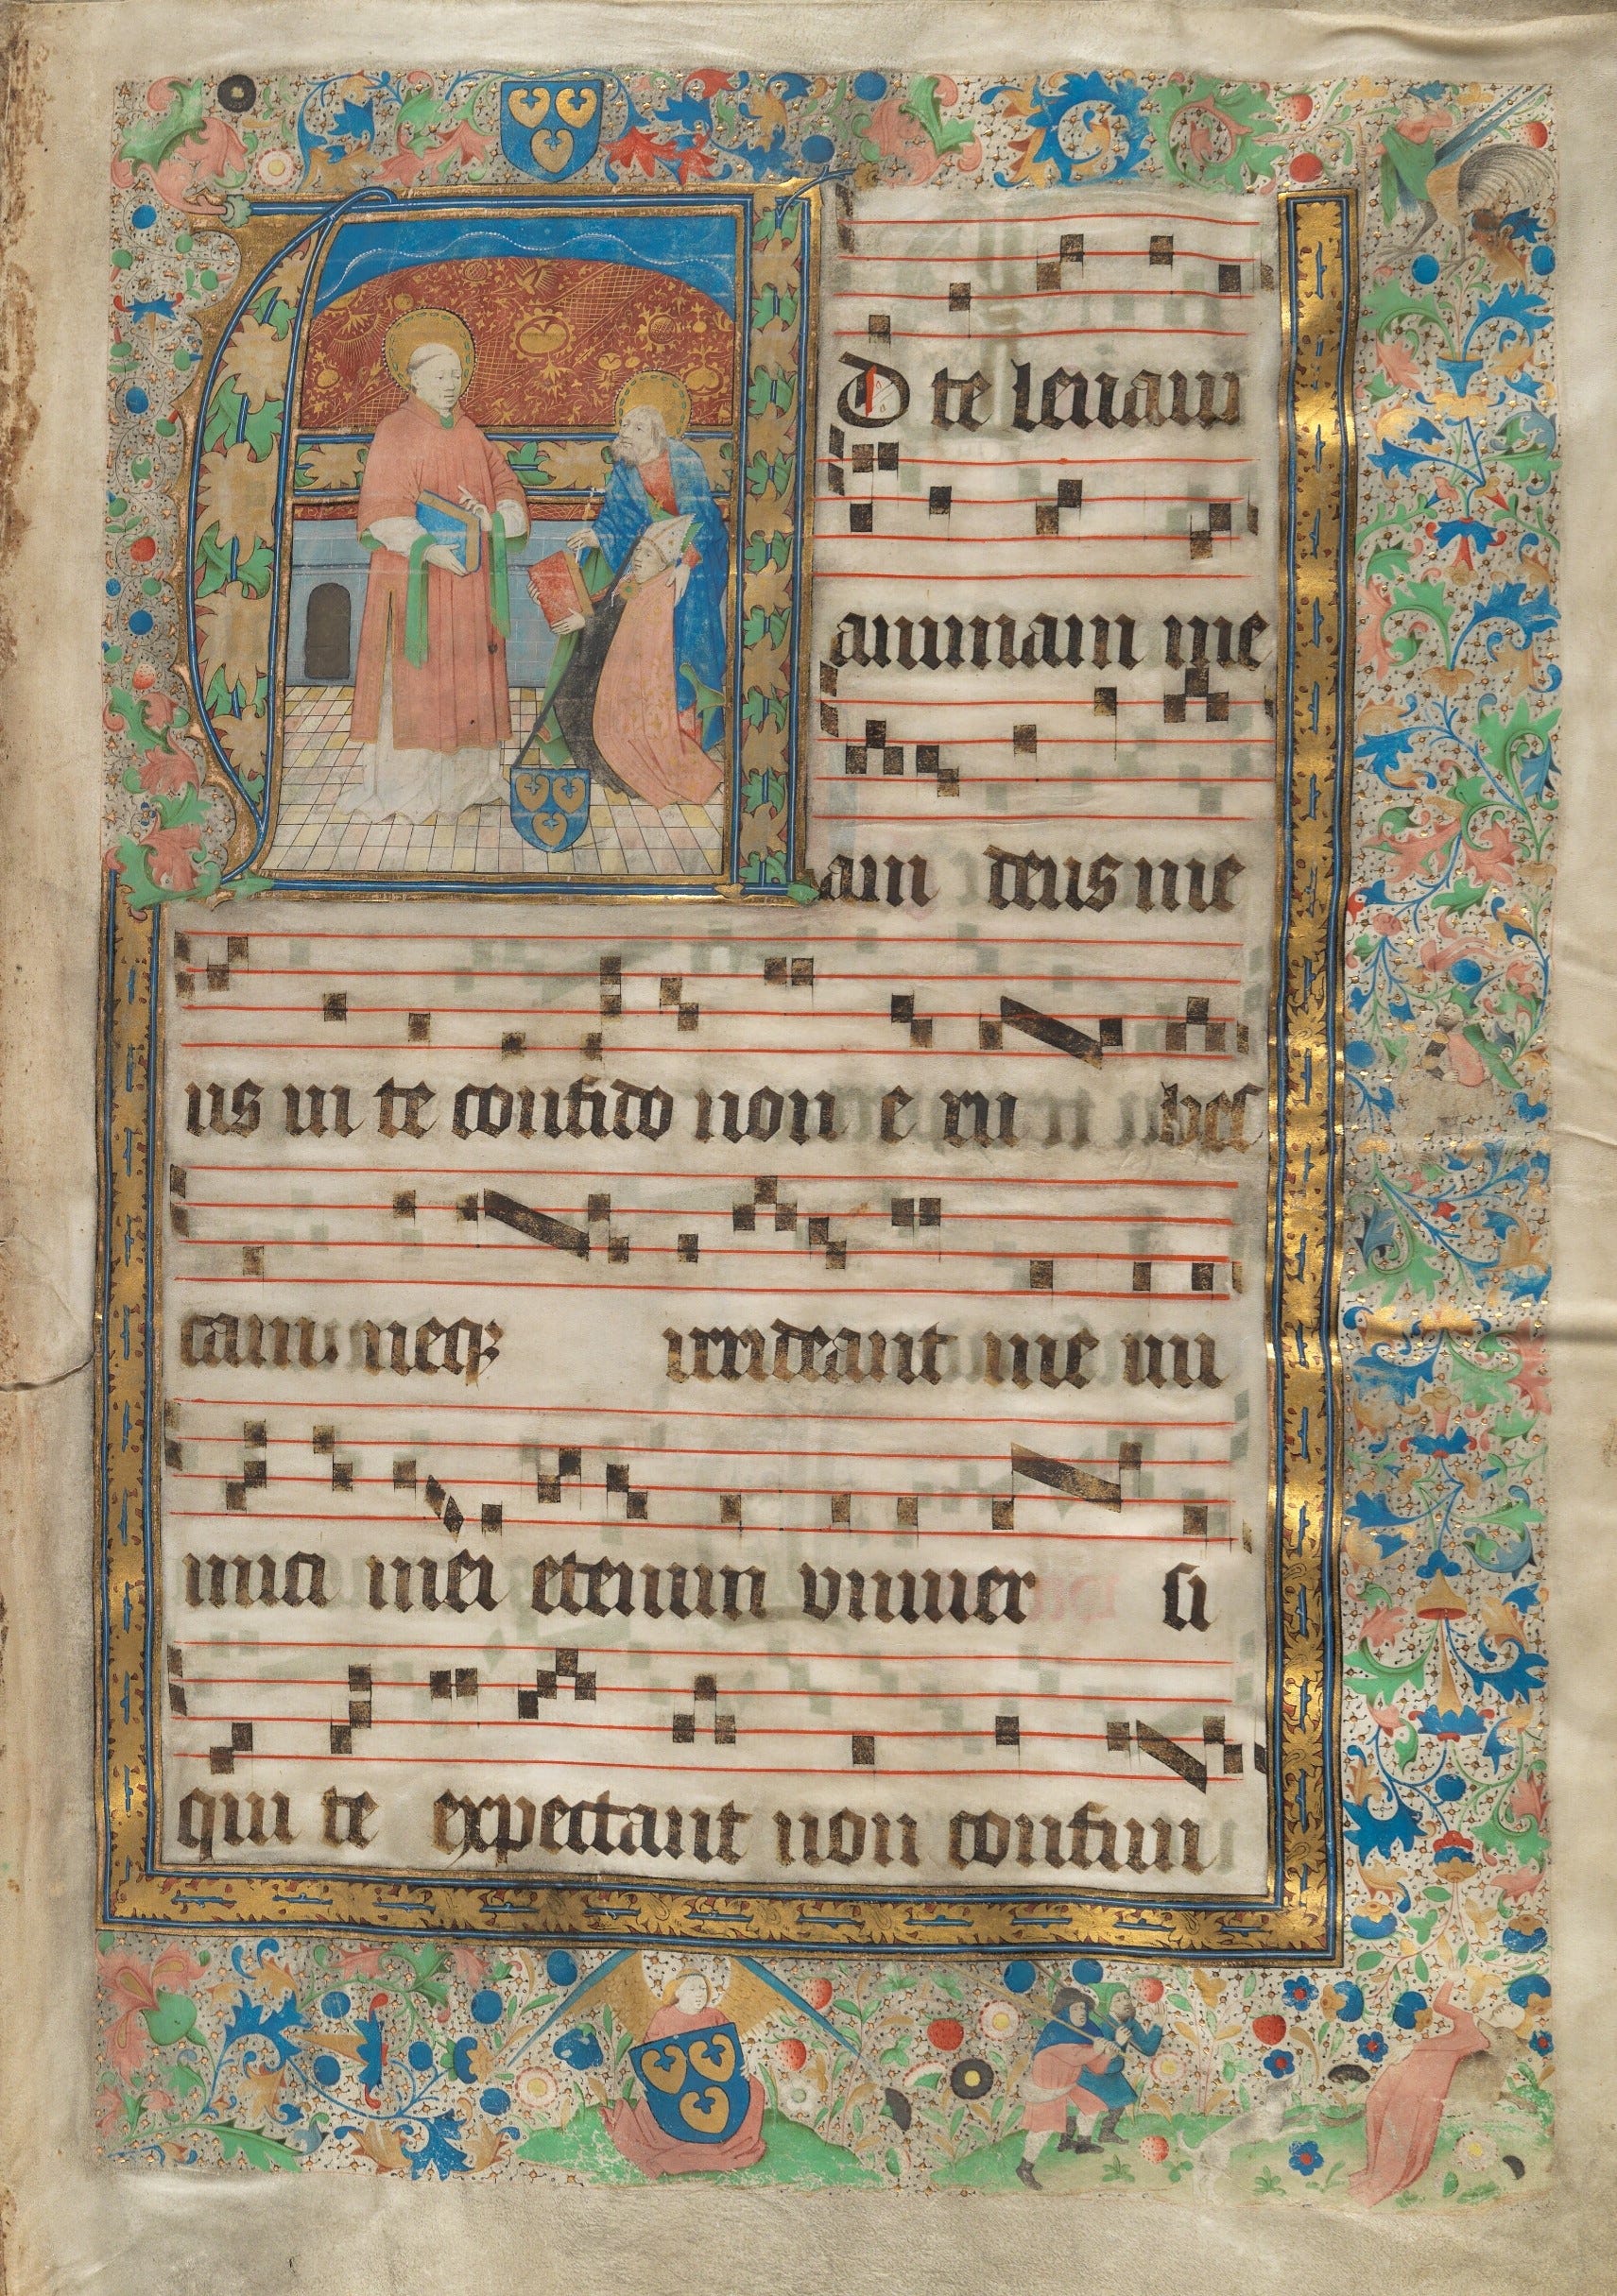 AD te leuam
animam me
am deus me
us in te confido non e ru bes
cam neqz irrideant me ini
mici mei etenim vniuer si
qui te expectant non confun